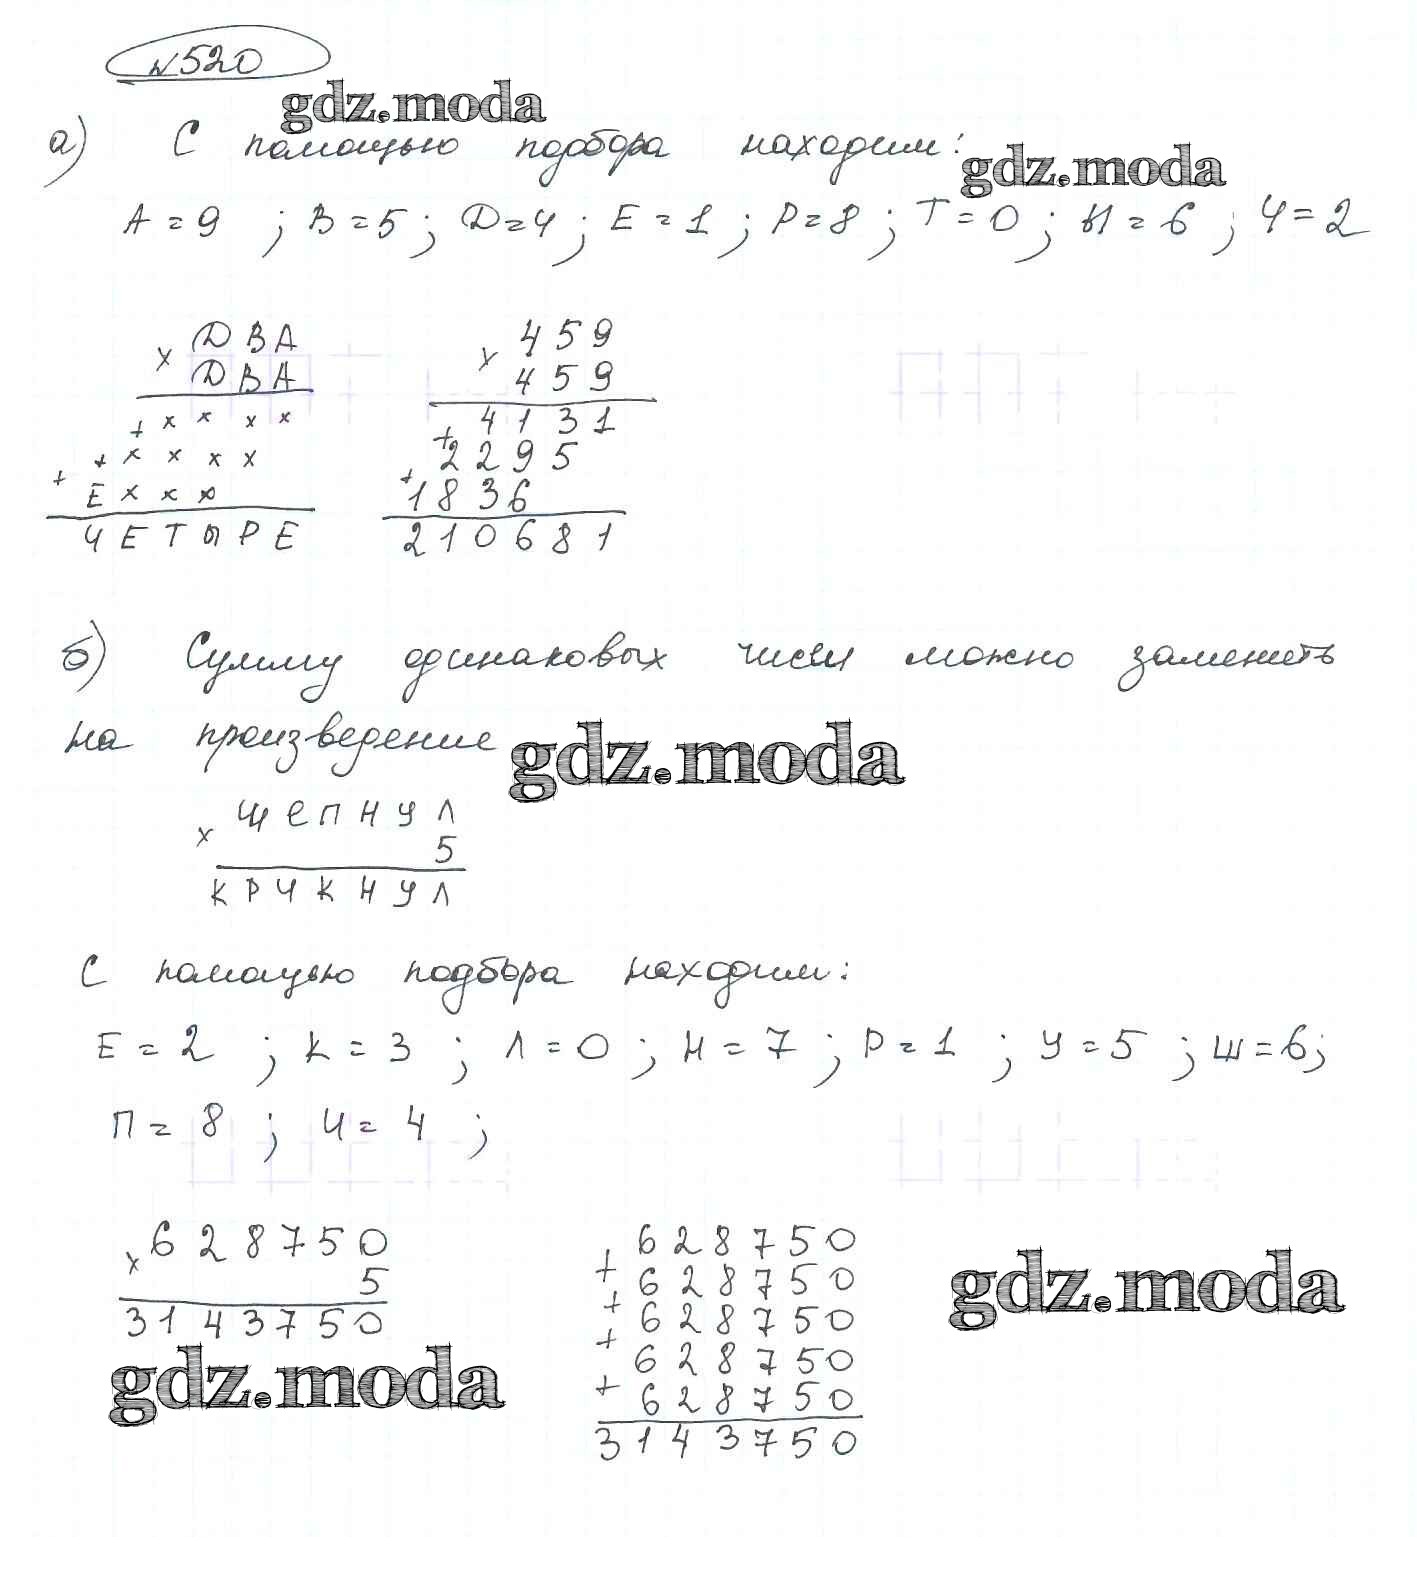 №520
gdz.moda
а) С помощью подбора находим:
gdz.moda
А = 9 ; В = 5 ; Д = 4 ; Е = 1 ; Р = 8 ; Т = 0 ; Ы = 6 ; Ч = 2
× ДВА
ДВА
+ × × × ×
+ × × × ×
+ Е × × ×
ЧЕТЫРЕ
× 459
459
+ 4131
+ 2295
+ 1836
210681
б) Сумму одинаковых чисел можно заменить
на произведение
gdz.moda
× ЩЕПНУЛ
5
КРЧКНУЛ
С помощью подбора находим:
Е = 2 ; К = 3 ; Л = 0 ; Н = 7 ; Р = 1 ; У = 5 ; Ш = 6 ;
П = 8 ; Ч = 4 ;
× 628750
5
3143750
+ 628750
+ 628750
+ 628750
+ 628750
+ 628750
3143750
gdz.moda
gdz.moda